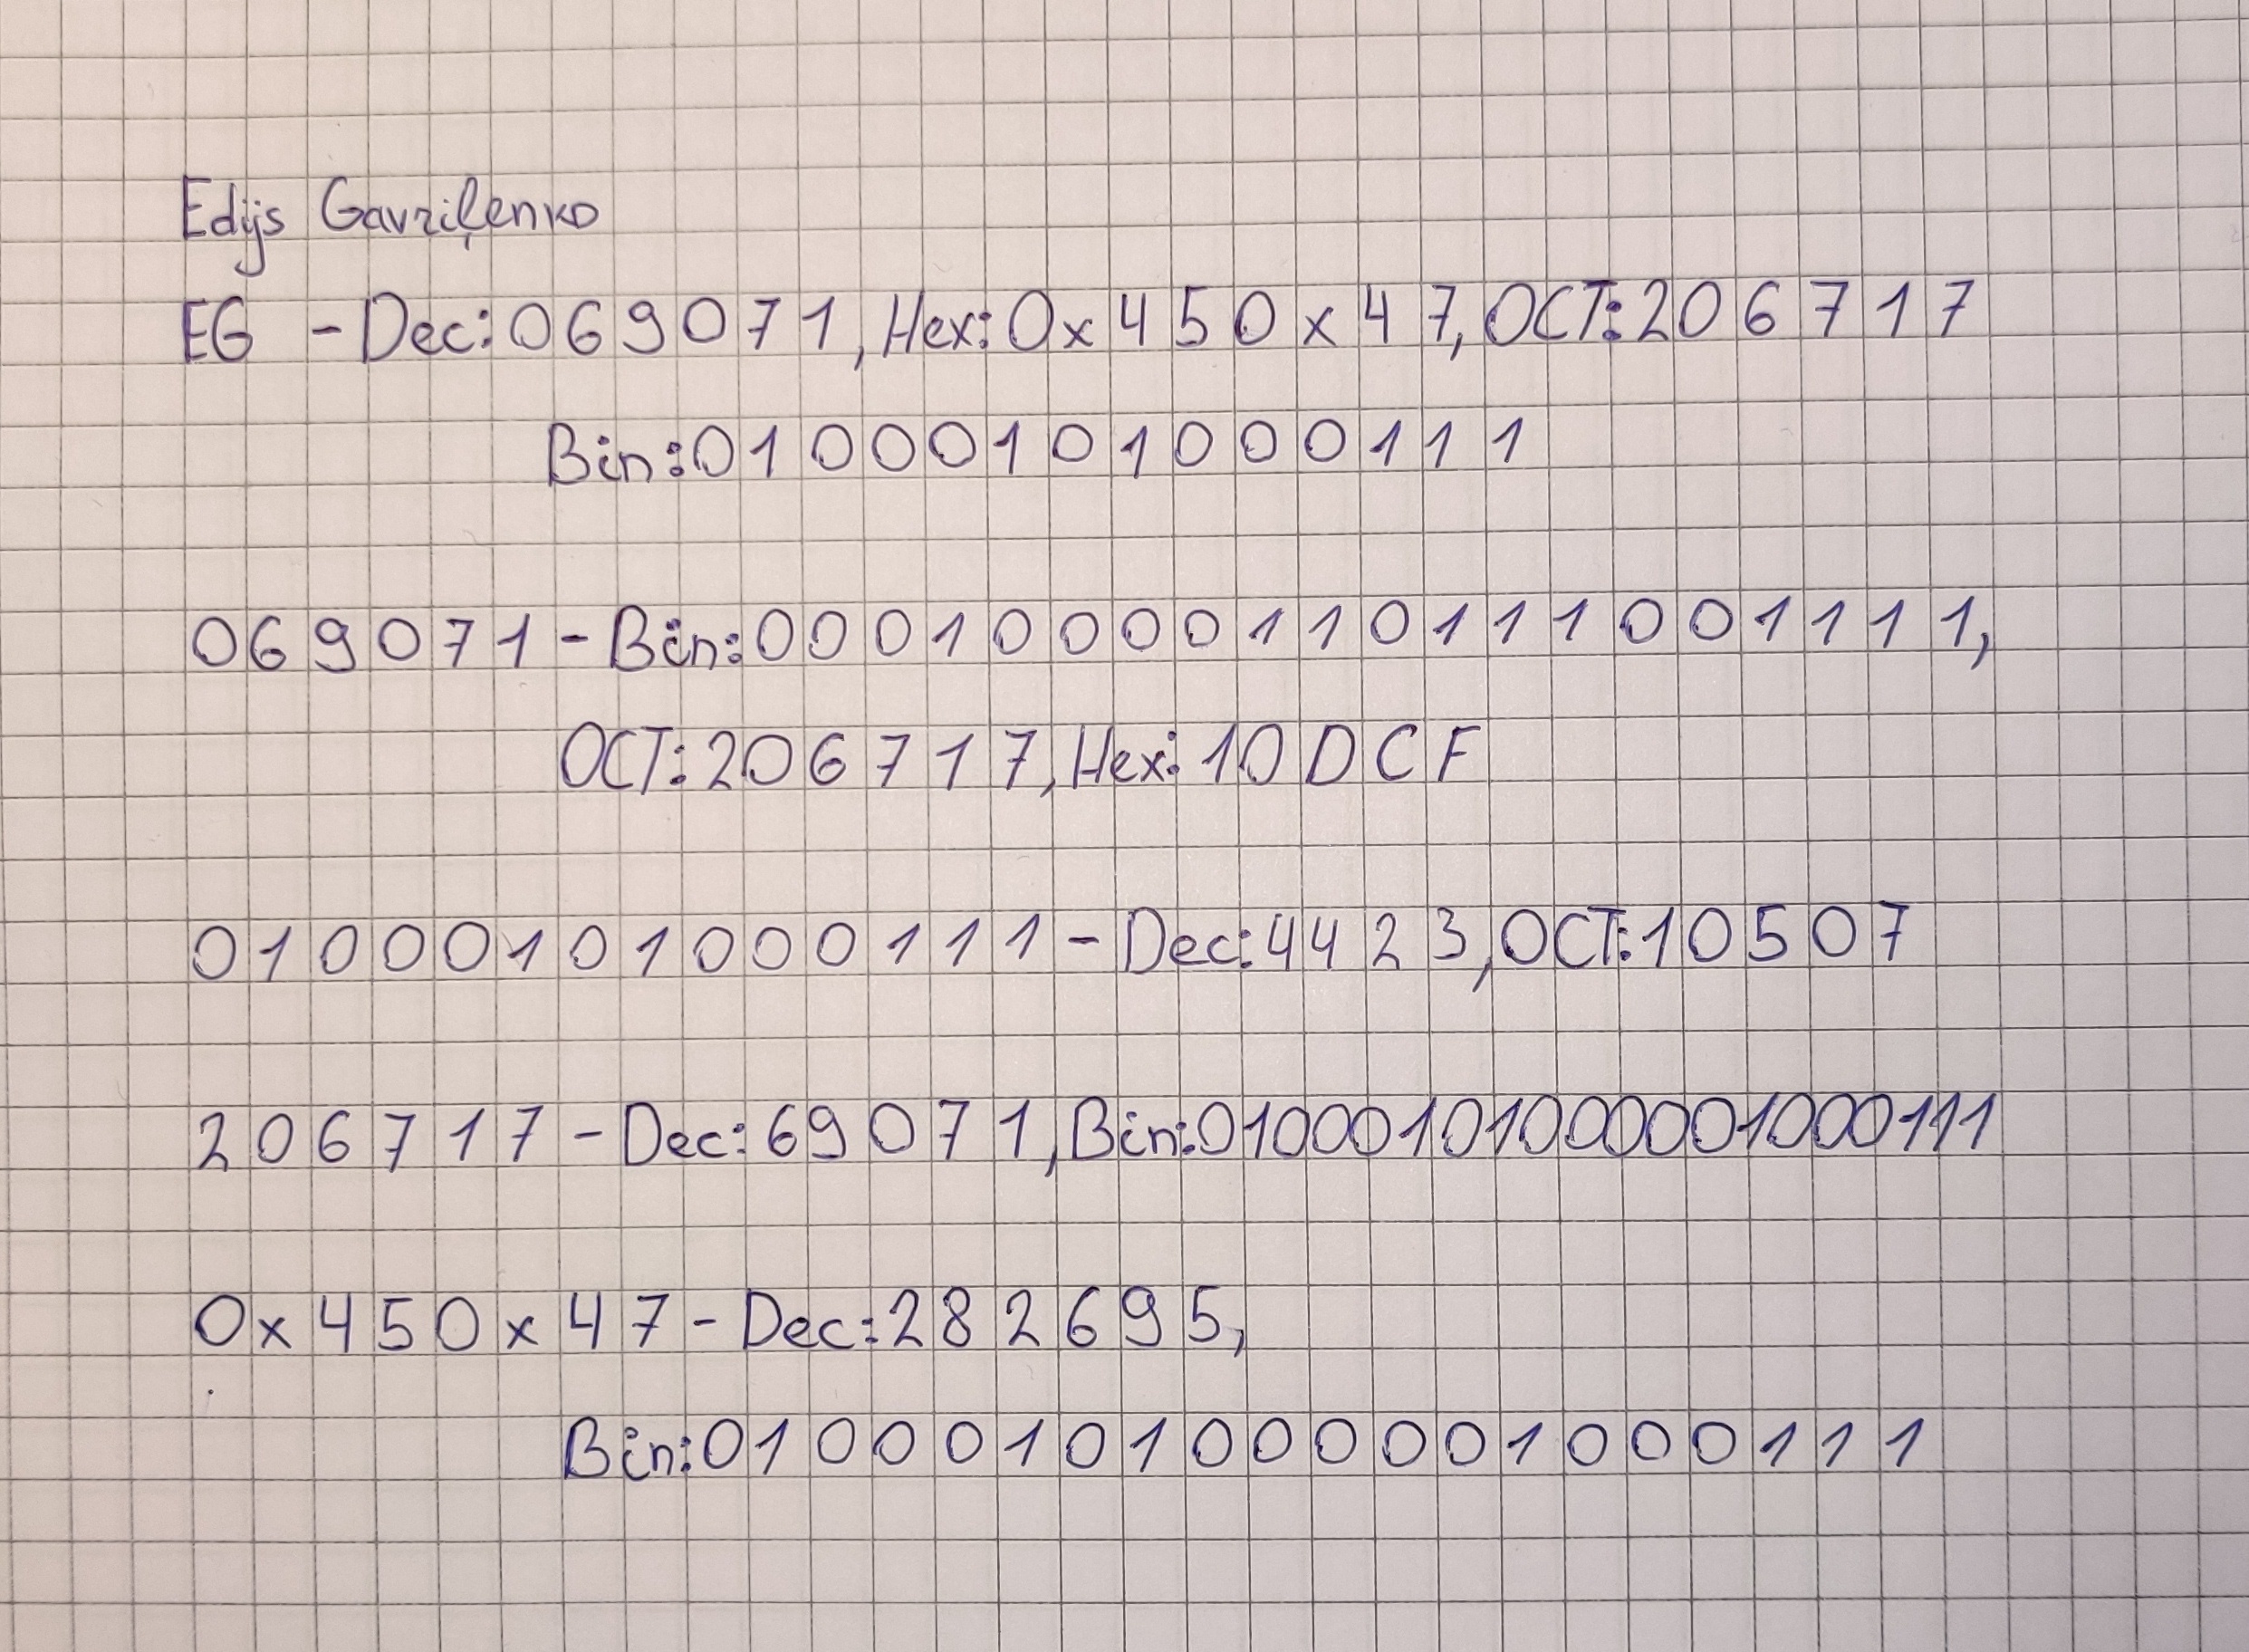 Edijs Gavriļenko
EG - Dec: 069071, Hex: 0x450x47, OCT: 206717
Bin: 01000101000111
069071 - Bin: 000100001101110011111,
OCT: 206717, Hex: 10DCF
01000101000111 - Dec: 4423, OCT: 10507
206717 - Dec: 69071, Bin: 01000101000001000111
0x450x47 - Dec: 282695,
Bin: 01000101000001000111